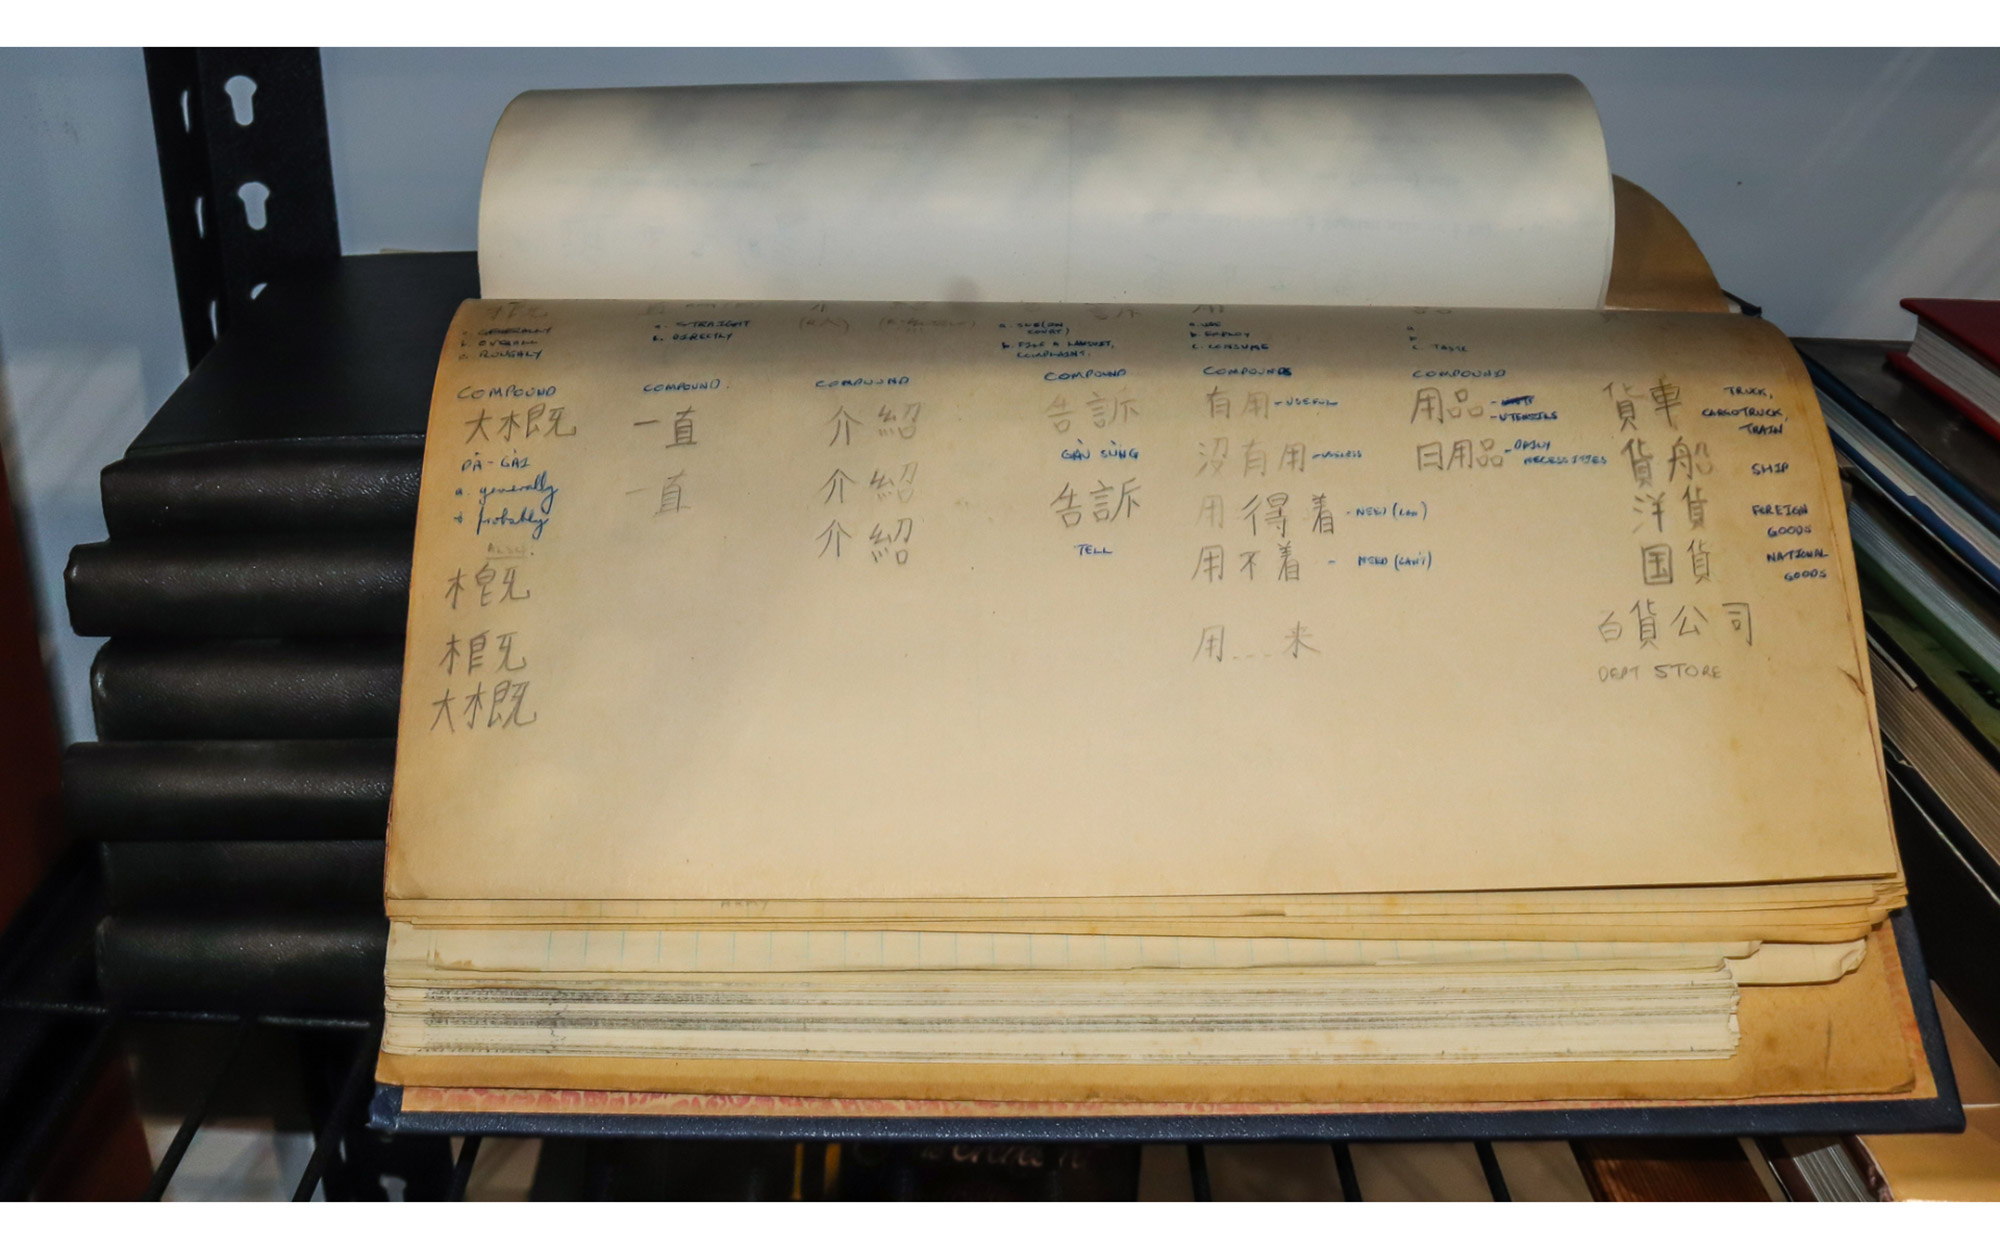 a. GENERALLY
b. OVERALL
c. ROUGHLY
COMPOUND
大概
DÀ-GÀI
a. generally
b probably
ALSO:
概
概
大概
a. STRAIGHT
b. DIRECTLY
COMPOUND.
一直
一直
COMPOUND
介紹
介紹
介紹
a. SUE (IN COURT)
b. FILE A LAWSUIT,
COMPLAINT.
COMPOUND
告訴
GÀU SÙNG
告訴
TELL
用
a. USE
b. EMPLOY
c. CONSUME
COMPOUNDS
有用 - USEFUL
没有用 - USELESS
用得着 - NEED (CAN)
用不着 - NEED (CAN'T)
用....来
a.
b.
c. TASTE
COMPOUND
用品 - UTENSILS
日用品 - DAILY
NECESSITIES
貨車 TRUCK,
CARGO TRUCK,
TRAIN
貨船 SHIP
洋貨 FOREIGN
GOODS
国貨 NATIONAL
GOODS
百貨公司
DEPT STORE